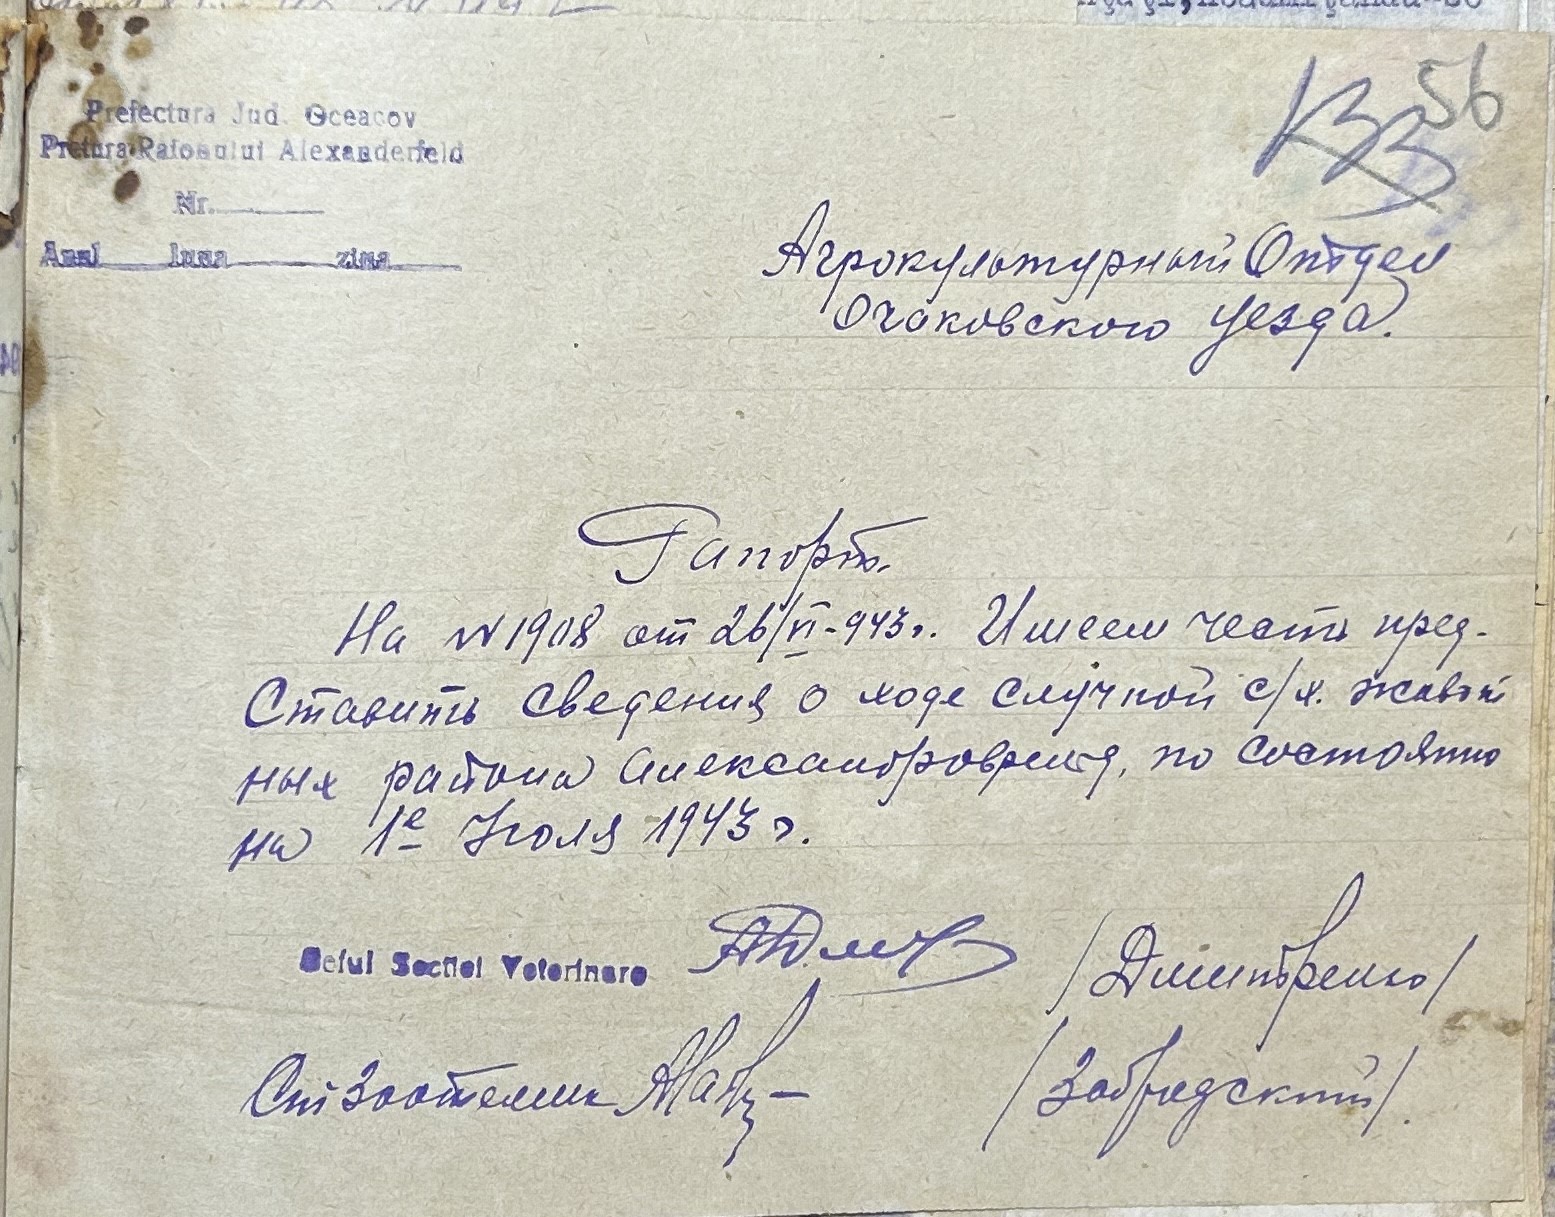 56
Prefectura Jud. Oceacov
Pretura Raionului Alexanderfeld
Nr.
Anul luna ziua
Агрокультурный Отдел
Очаковского Уезда.
Рапорт.
На № 1908 от 26/VI-943г. Имеем честь пред-
ставить сведения о ходе случной с/х. живот
ных района Александровфельд, по состоянию
на 1е Июля 1943 г.
Seful Sectiei Veterinare /Дмитренко/
Ст Зоотехник /Забродский/.